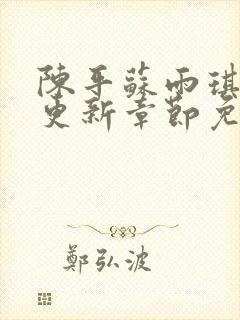 陳平蘇雨琪
更新章節免
鄭弘波